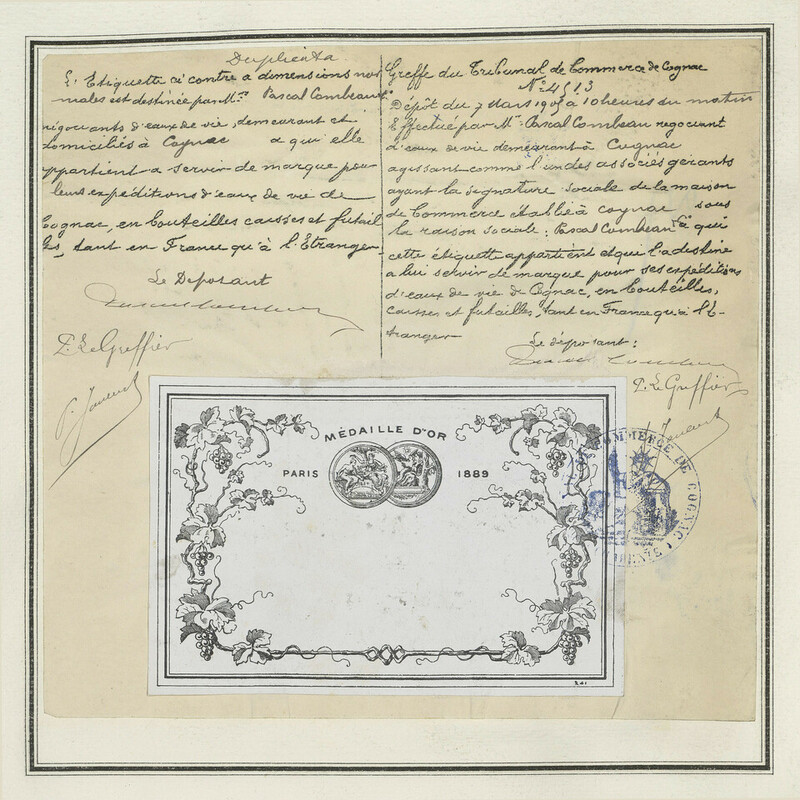 Duplicata
L'Etiquette ci contre a dimensions nor
males est destinée par Mr. Pascal Combeau & Co
négociants d'eaux de vie, demeurant et
domiciliés à Cognac a qui elle
appartient a servir de marque pour
leurs expéditions d'eaux de vie de
Cognac, en bouteilles caisses et futail
les, tant en France qu'à l'Etranger
Le Deposant
P. Le Greffier
Greffe du Tribunal de Commerce de Cognac
No 4513
Dépôt du 7 Mars 1905 a 10 heures du matin
Effectué par Mr. Pascal Combeau negociant
d'eaux de vie demeurant à Cognac
agissant comme l'un des associés gérants
ayant la signature sociale de la maison
de Commerce établie à Cognac sous
la raison sociale: Pascal Combeau & Co a qui
cette étiquette appartient et qui l'a destine
a lui servir de marque pour ses expéditions
d'eaux de vie de Cognac, en bouteilles,
caisses et futailles, tant en France qu'à l'E-
tranger
Le déposant:
P. Le Greffier
MÉDAILLE D'OR
PARIS 1889
COMMERCE DE COGNAC